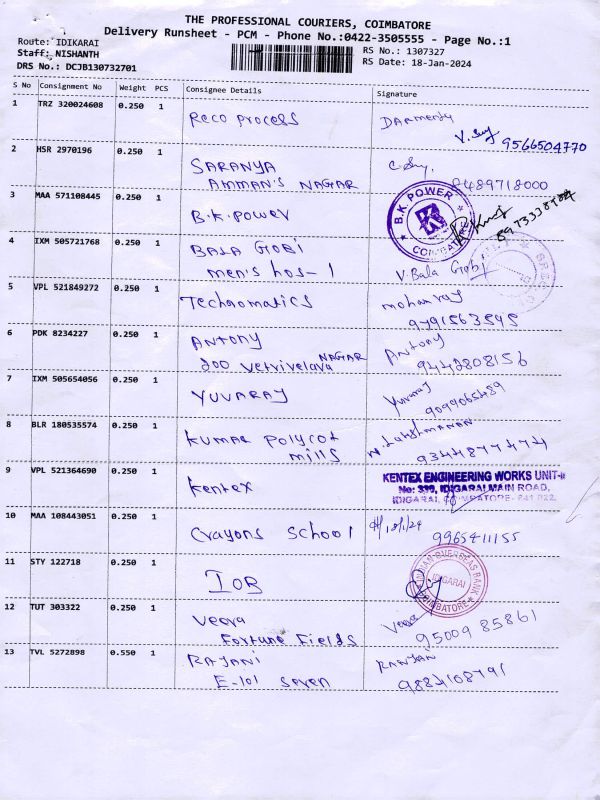 THE PROFESSIONAL COURIERS, COIMBATORE
Delivery Runsheet - PCM - Phone No.:0422-3505555 - Page No.:1
Route: IDIKARAI
Staff: NISHANTH
DRS No.: DCJB130732701
RS No.: 1307327
RS Date: 18-Jan-2024
S No Consignment No Weight PCS Consignee Details Signature
1 TRZ 320024608 0.250 1 Reco process
9566504770
2 HSR 2970196 0.250 1 SARANYA
AMMAN'S NAGAR
8489718000
3 MAA 571108445 0.250 1 B.K.power
B.K. POWER
COIMBATORE
4 IXM 505721768 0.250 1 BALA GOBI
men's hos-1
V. Bala Gobi
5 VPL 521849272 0.250 1 Technomatics
mohanraj
9791563545
6 PDK 8234227 0.250 1 ANTONY
200 vetrivelava NAGAR
Antony
9442808156
7 IXM 505654056 0.250 1 YUVARAJ
Yuvaraj
9099065489
8 BLR 180535574 0.250 1 KUMAR POLYCOT
mills
N. Lakshmanan
9344877474
9 VPL 521364690 0.250 1 Kentex
KENTEX ENGINEERING WORKS UNIT-II
No: 399, IDIGARAI MAIN ROAD,
IDIGARAI, COIMBATORE - 641 022.
10 MAA 108443051 0.250 1 Crayons School
9965411155
11 STY 122718 0.250 1 IOB
INDIAN OVERSEAS BANK
IDIGARAI
COIMBATORE
12 TUT 303322 0.250 1 Veera
Fortune Fields
Veera
9500985861
13 TVL 5272898 0.550 1 RAJANI
E-101 Seven
RANJAN
9884108791